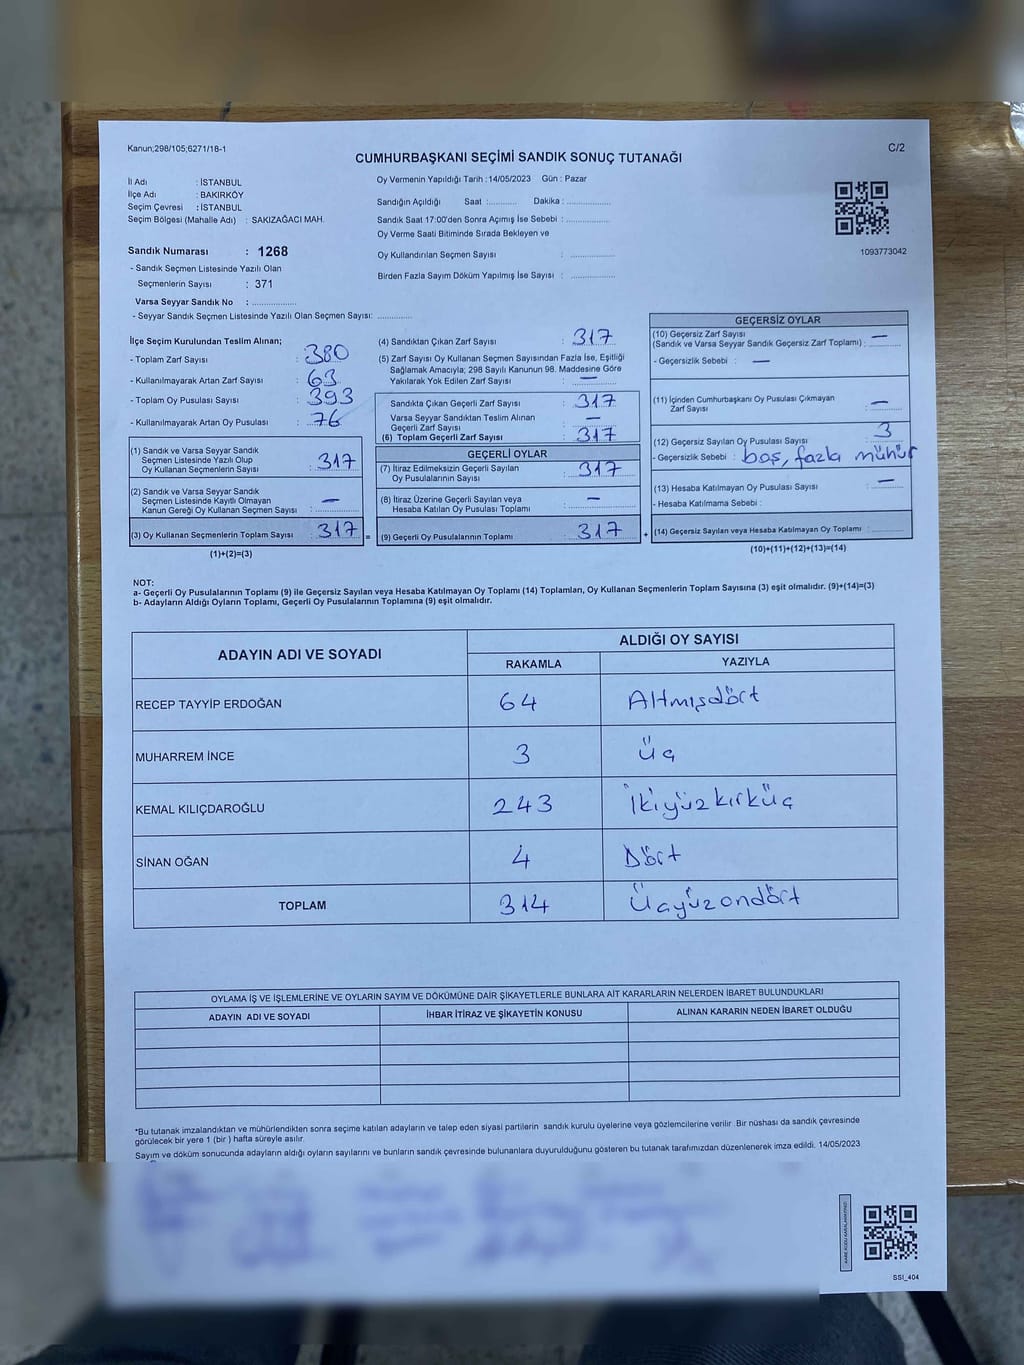 Kanun;298/105;6271/18-1
C/2
CUMHURBAŞKANI SEÇİMİ SANDIK SONUÇ TUTANAĞI
İl Adı : İSTANBUL
İlçe Adı : BAKIRKÖY
Seçim Çevresi : İSTANBUL
Seçim Bölgesi (Mahalle Adı) : SAKIZAĞACI MAH.
Sandık Numarası : 1268
- Sandık Seçmen Listesinde Yazılı Olan
Seçmenlerin Sayısı : 371
Varsa Seyyar Sandık No : ..................
- Seyyar Sandık Seçmen Listesinde Yazılı Olan Seçmen Sayısı: ..............
Oy Vermenin Yapıldığı Tarih : 14/05/2023 Gün : Pazar
Sandığın Açıldığı Saat :........... Dakika : .................
Sandık Saat 17:00'den Sonra Açımış İse Sebebi : .................
Oy Verme Saati Bitiminde Sırada Bekleyen ve
Oy Kullandırılan Seçmen Sayısı : .................
Birden Fazla Sayım Döküm Yapılmış İse Sayısı : .................
1093773042
İlçe Seçim Kurulundan Teslim Alınan;
- Toplam Zarf Sayısı : 380
- Kullanılmayarak Artan Zarf Sayısı : 63
- Toplam Oy Pusulası Sayısı : 393
- Kullanılmayarak Artan Oy Pusulası : 76
(1) Sandık ve Varsa Seyyar Sandık
Seçmen Listesinde Yazılı Olup
Oy Kullanan Seçmenlerin Sayısı : 317
(2) Sandık ve Varsa Seyyar Sandık
Seçmen Listesinde Kayıtlı Olmayan
Kanun Gereği Oy Kullanan Seçmen Sayısı : —
(3) Oy Kullanan Seçmenlerin Toplam Sayısı : 317 =
(1)+(2)=(3)
(4) Sandıktan Çıkan Zarf Sayısı : 317
(5) Zarf Sayısı Oy Kullanan Seçmen Sayısından Fazla İse, Eşitliği
Sağlamak Amacıyla; 298 Sayılı Kanunun 98. Maddesine Göre
Yakılarak Yok Edilen Zarf Sayısı : —
Sandıkta Çıkan Geçerli Zarf Sayısı : 317
Varsa Seyyar Sandıktan Teslim Alınan
Geçerli Zarf Sayısı : —
(6) Toplam Geçerli Zarf Sayısı : 317
GEÇERLİ OYLAR
(7) İtiraz Edilmeksizin Geçerli Sayılan
Oy Pusulalarının Sayısı : 317
(8) İtiraz Üzerine Geçerli Sayılan veya
Hesaba Katılan Oy Pusulası Toplamı : —
(9) Geçerli Oy Pusulalarının Toplamı : 317 +
GEÇERSİZ OYLAR
(10) Geçersiz Zarf Sayısı
(Sandık ve Varsa Seyyar Sandık Geçersiz Zarf Toplamı) : —
- Geçersizlik Sebebi : —
(11) İçinden Cumhurbaşkanı Oy Pusulası Çıkmayan
Zarf Sayısı : —
(12) Geçersiz Sayılan Oy Pusulası Sayısı : 3
- Geçersizlik Sebebi : boş, fazla mühür
(13) Hesaba Katılmayan Oy Pusulası Sayısı : —
- Hesaba Katılmama Sebebi :
(14) Geçersiz Sayılan veya Hesaba Katılmayan Oy Toplamı : ............
(10)+(11)+(12)+(13)=(14)
NOT:
a- Geçerli Oy Pusulalarının Toplamı (9) ile Geçersiz Sayılan veya Hesaba Katılmayan Oy Toplamı (14) Toplamları, Oy Kullanan Seçmenlerin Toplam Sayısına (3) eşit olmalıdır. (9)+(14)=(3)
b- Adayların Aldığı Oyların Toplamı, Geçerli Oy Pusulalarının Toplamına (9) eşit olmalıdır.
ADAYIN ADI VE SOYADI
ALDIĞI OY SAYISI
RAKAMLA YAZIYLA
RECEP TAYYİP ERDOĞAN 64 Altmışdört
MUHARREM İNCE 3 Üç
KEMAL KILIÇDAROĞLU 243 İkiyüzkırküç
SİNAN OĞAN 4 Dört
TOPLAM 314 Üçyüzondört
OYLAMA İŞ VE İŞLEMLERİNE VE OYLARIN SAYIM VE DÖKÜMÜNE DAİR ŞİKAYETLERLE BUNLARA AİT KARARLARIN NELERDEN İBARET BULUNDUKLARI
ADAYIN ADI VE SOYADI İHBAR İTİRAZ VE ŞİKAYETİN KONUSU ALINAN KARARIN NEDEN İBARET OLDUĞU
*Bu tutanak imzalandıktan ve mühürlendikten sonra seçime katılan adayların ve talep eden siyasi partilerin sandık kurulu üyelerine veya gözlemcilerine verilir. Bir nüshası da sandık çevresinde
görülecek bir yere 1 (bir ) hafta süreyle asılır.
Sayım ve döküm sonucunda adayların aldığı oyların sayılarını ve bunların sandık çevresinde bulunanlara duyurulduğunu gösteren bu tutanak tarafımızdan düzenlenerek imza edildi. 14/05/2023
SSI_404